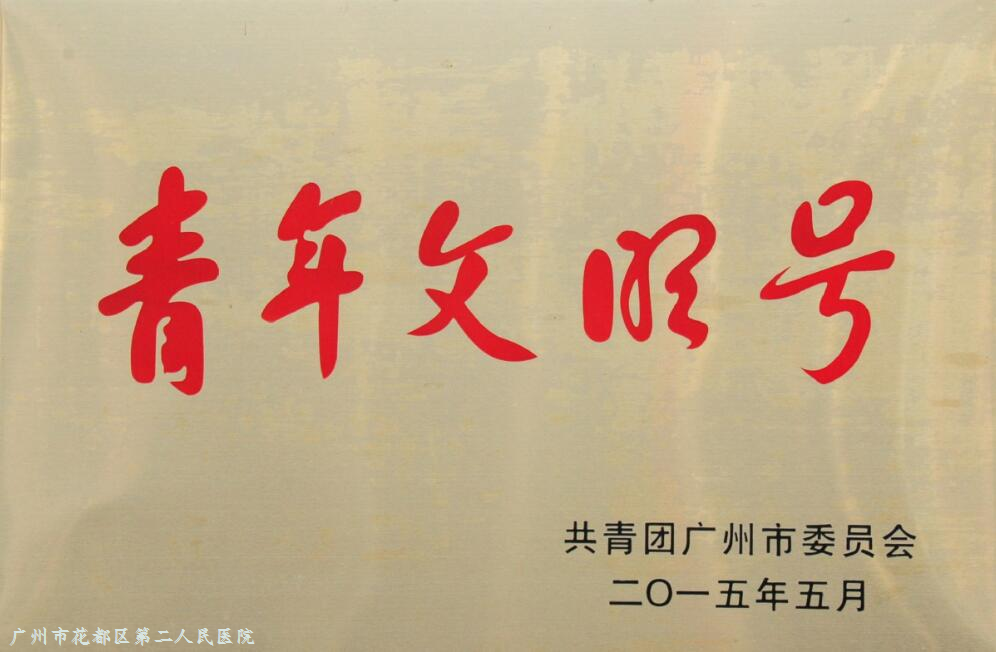 青年文明号
共青团广州市委员会
二〇一五年五月
广州市花都区第二人民医院